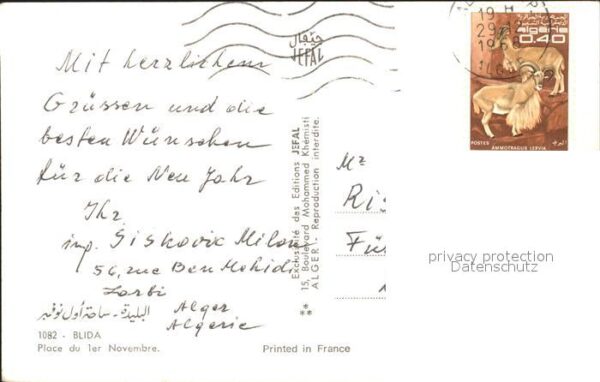 Mit herzlichem
Grüssen und die
besten Wünschen
für die Neu Jahr
Ihr
inp. Siskovic Milan
56, rue Ben Mehidi
Larbi
Alger
Algerie
البليدة - ساحة أول نوفمبر
1082 - BLIDA
Place du 1er Novembre.
Printed in France
جيفال
JEFAL
Exclusivité des Editions JEFAL
15, Boulevard Mohammed Khémisti
ALGER - Reproduction interdite.
19 H
29-12
algérie
0.40
POSTES
AMMOTRAGUS LERVIA
Mz
Ris
Fü
privacy protection
Datenschutz